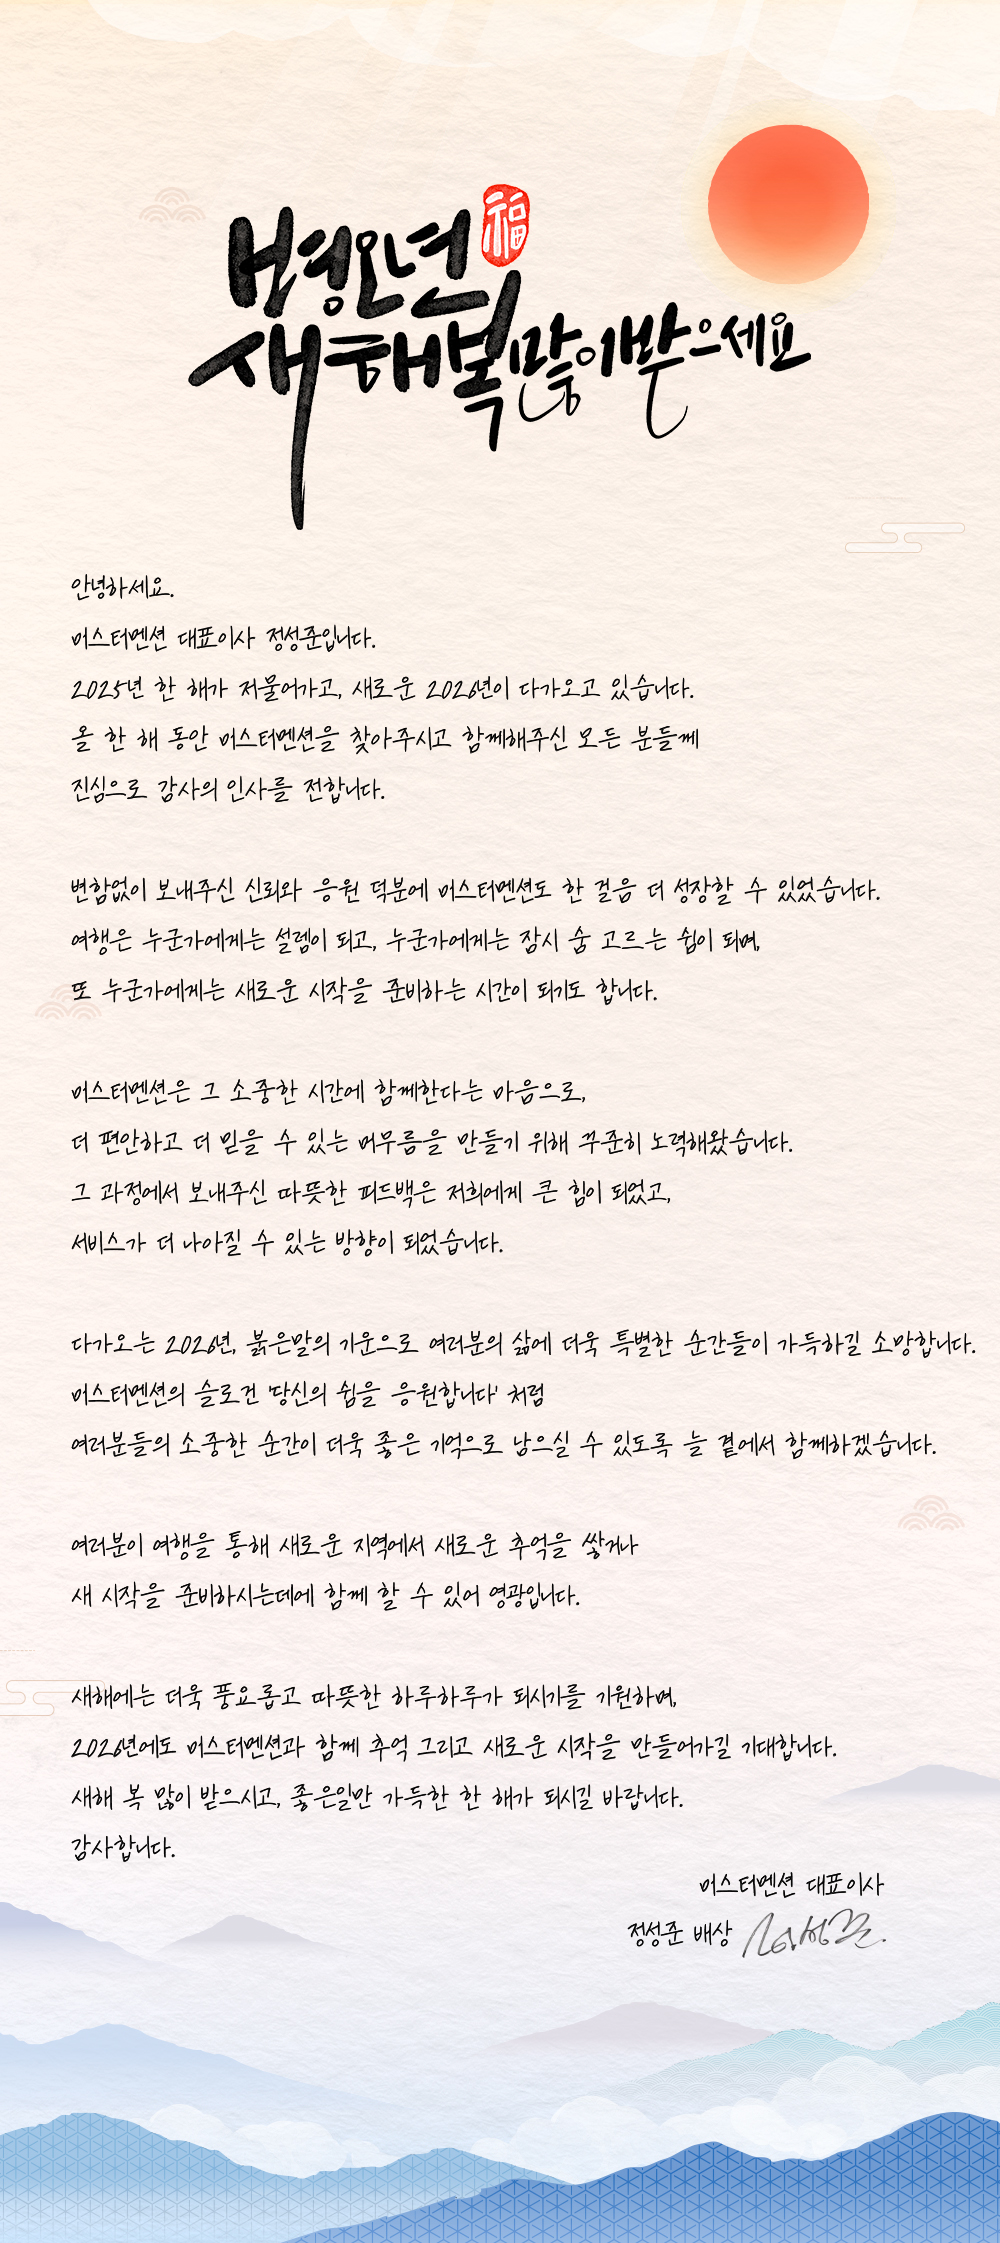 병오년
福
새해 복 많이 받으세요
안녕하세요.
머스터멘션 대표이사 정성준입니다.
2025년 한 해가 저물어가고, 새로운 2026년이 다가오고 있습니다.
올 한 해 동안 머스터멘션을 찾아주시고 함께해주신 모든 분들께
진심으로 감사의 인사를 전합니다.
변함없이 보내주신 신뢰와 응원 덕분에 머스터멘션도 한 걸음 더 성장할 수 있었습니다.
여행은 누군가에게는 설렘이 되고, 누군가에게는 잠시 숨 고르는 쉼이 되며,
또 누군가에게는 새로운 시작을 준비하는 시간이 되기도 합니다.
머스터멘션은 그 소중한 시간에 함께한다는 마음으로,
더 편안하고 더 믿을 수 있는 머무름을 만들기 위해 꾸준히 노력해왔습니다.
그 과정에서 보내주신 따뜻한 피드백은 저희에게 큰 힘이 되었고,
서비스가 더 나아질 수 있는 방향이 되었습니다.
다가오는 2026년, 붉은말의 기운으로 여러분의 삶에 더욱 특별한 순간들이 가득하길 소망합니다.
머스터멘션의 슬로건 '당신의 쉼을 응원합니다' 처럼
여러분들의 소중한 순간이 더욱 좋은 기억으로 남으실 수 있도록 늘 곁에서 함께하겠습니다.
여러분이 여행을 통해 새로운 지역에서 새로운 추억을 쌓거나
새 시작을 준비하시는데에 함께 할 수 있어 영광입니다.
새해에는 더욱 풍요롭고 따뜻한 하루하루가 되시기를 기원하며,
2026년에도 머스터멘션과 함께 추억 그리고 새로운 시작을 만들어가길 기대합니다.
새해 복 많이 받으시고, 좋은일만 가득한 한 해가 되시길 바랍니다.
감사합니다.
머스터멘션 대표이사
정성준 배상 정성준.